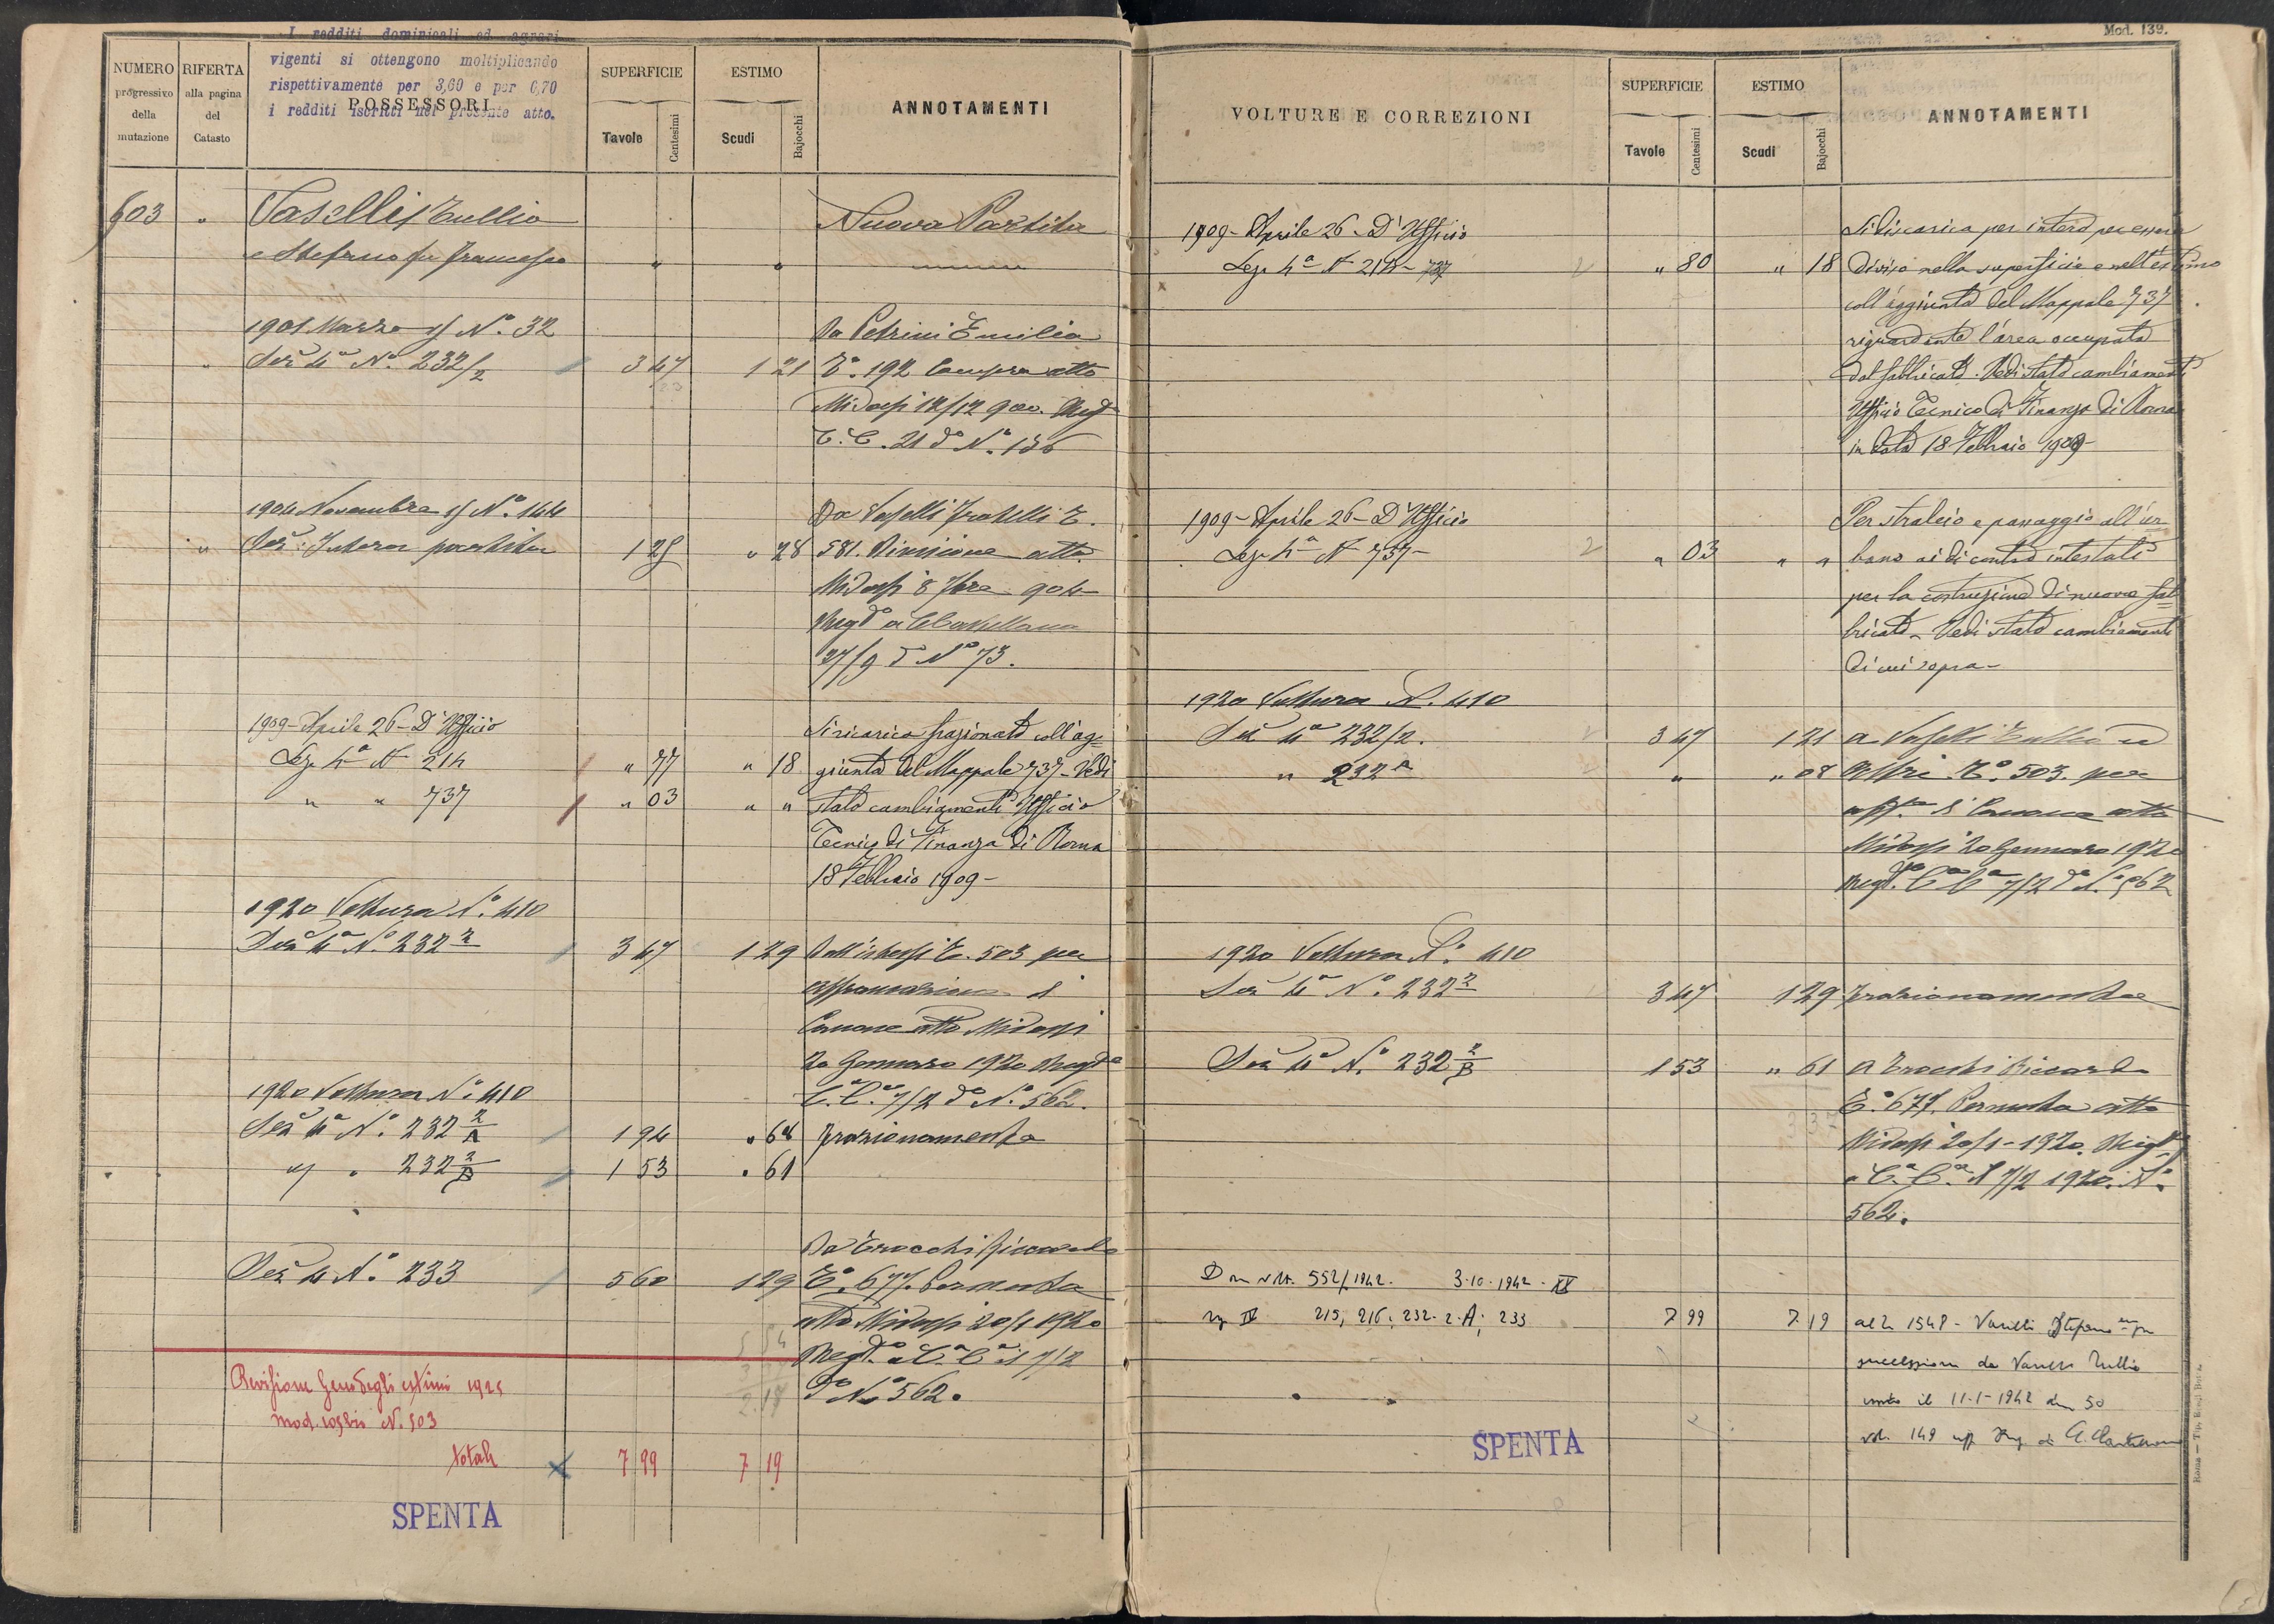 I redditi dominicali ed agrari
vigenti si ottengono moltiplicando
rispettivamente per 3,60 e per 0,70
i redditi iscritti nel presente atto.
NUMERO progressivo della mutazione
RIFERTA alla pagina del Catasto
POSSESSORI
SUPERFICIE
Tavole
Centesimi
ESTIMO
Scudi
Bajocchi
ANNOTAMENTI
603 " Vaselli Tullio Nuova Partita
e Stefano fu Francesco " "
1901 Marzo N.º 32 Da Petrini Emilia
" Sez 4ª Nº 232/2 3 47 1 21 Tº 192 Compra atto
Midossi 12/12 900. Regº
C. C. 21 dº Nº 136
1904 Novembre Nº 144 Da Vaselli Fratelli T.
" Sez: Intera partita 1 25 " 28 581. Divisione atto
Midossi 8 7bre 904
Regº a CCastellana
27/9 dº Nº 73.
1909 - Aprile 26 - D'Ufficio Si ricarica frazionato coll'ag=
Sez. 4ª N 214 " 77 " 18 giunta del Mappale 737 - Vedi
" " 737 " 03 " " stato cambiamenti Ufficio
Tecnico di Finanza di Roma
18 Febbraio 1909 -
1920 Voltura Nº. 410
Sez 4ª Nº 232 2 3 47 1 29 Dall'istessi T. 503 per
affrancazione di
Canone atto Midossi
20 Gennaro 1920 Regtº
1920 Voltura Nº 410 C. Cª 7/2 dº Nº. 562.
Sez 4ª Nº. 232 2/A 1 94 " 68 frazionamento
" " 232 2/B 1 53 " 61
Da Trocchi Riccardo
Sez 4 Nº. 233 5 60 1 29 Tº. 677. Permuta
atto Midossi 20/1 1920
Regtº a Cª Cª 7/2
dº Nº 562.
Revisione Gen. degli estimi 1925
mod. Nº. 503
Totale 7 99 7 19
SPENTA
Mod. 139.
VOLTURE E CORREZIONI
SUPERFICIE
Tavole
Centesimi
ESTIMO
Scudi
Bajocchi
ANNOTAMENTI
1909 - Aprile 26 - D'Ufficio Si discarica per intero per essere
Sez. 4ª N 214 - 737 " 80 " 18 diviso nella superficie e nell'estimo
coll'aggiunta del Mappale 737
riguardante l'area occupata
dal fabbricato. Vedi stato cambiamenti
Ufficio Tecnico di Finanza di Roma
in data 18 Febbraio 1909 -
1909 - Aprile 26 - D'Ufficio Per stralcio e passaggio all'ur=
Sez. 4ª N 737 - " 03 " " bano ai di contro intestati
per la costruzione di nuovo fab=
bricato - Vedi stato cambiamenti
di cui sopra -
1920 Voltura N. 410
Sez 4ª 232/2. 3 47 1 21 a Vaselli Tullio ed
" 232 A " " 08 Altri Tº. 503. per
aff.ne di Canone atto
Midossi 20 Gennaro 1920
Regtº. Cª Cª 7/2 dº Nº 562
1920 Voltura Nº. 410
Sez 4ª Nº. 232 2 3 47 1 29 frazionamento
Sez 4ª Nº. 232 2/B 1 53 " 61 a Trocchi Riccardo
Tº. 677. Permuta atto
Midossi 20/1-1920. Regtº
a Cª. Cª. 7/2 1920. Nº
562.
552/1942. 3-10-1942 - XX
IV 215, 216, 232-2-A; 233 7 99 7 19 al 1548 - Vaselli Stefano
successione da Vaselli Tullio
il 11-1-1942 den 50
vol. 149 uff
SPENTA